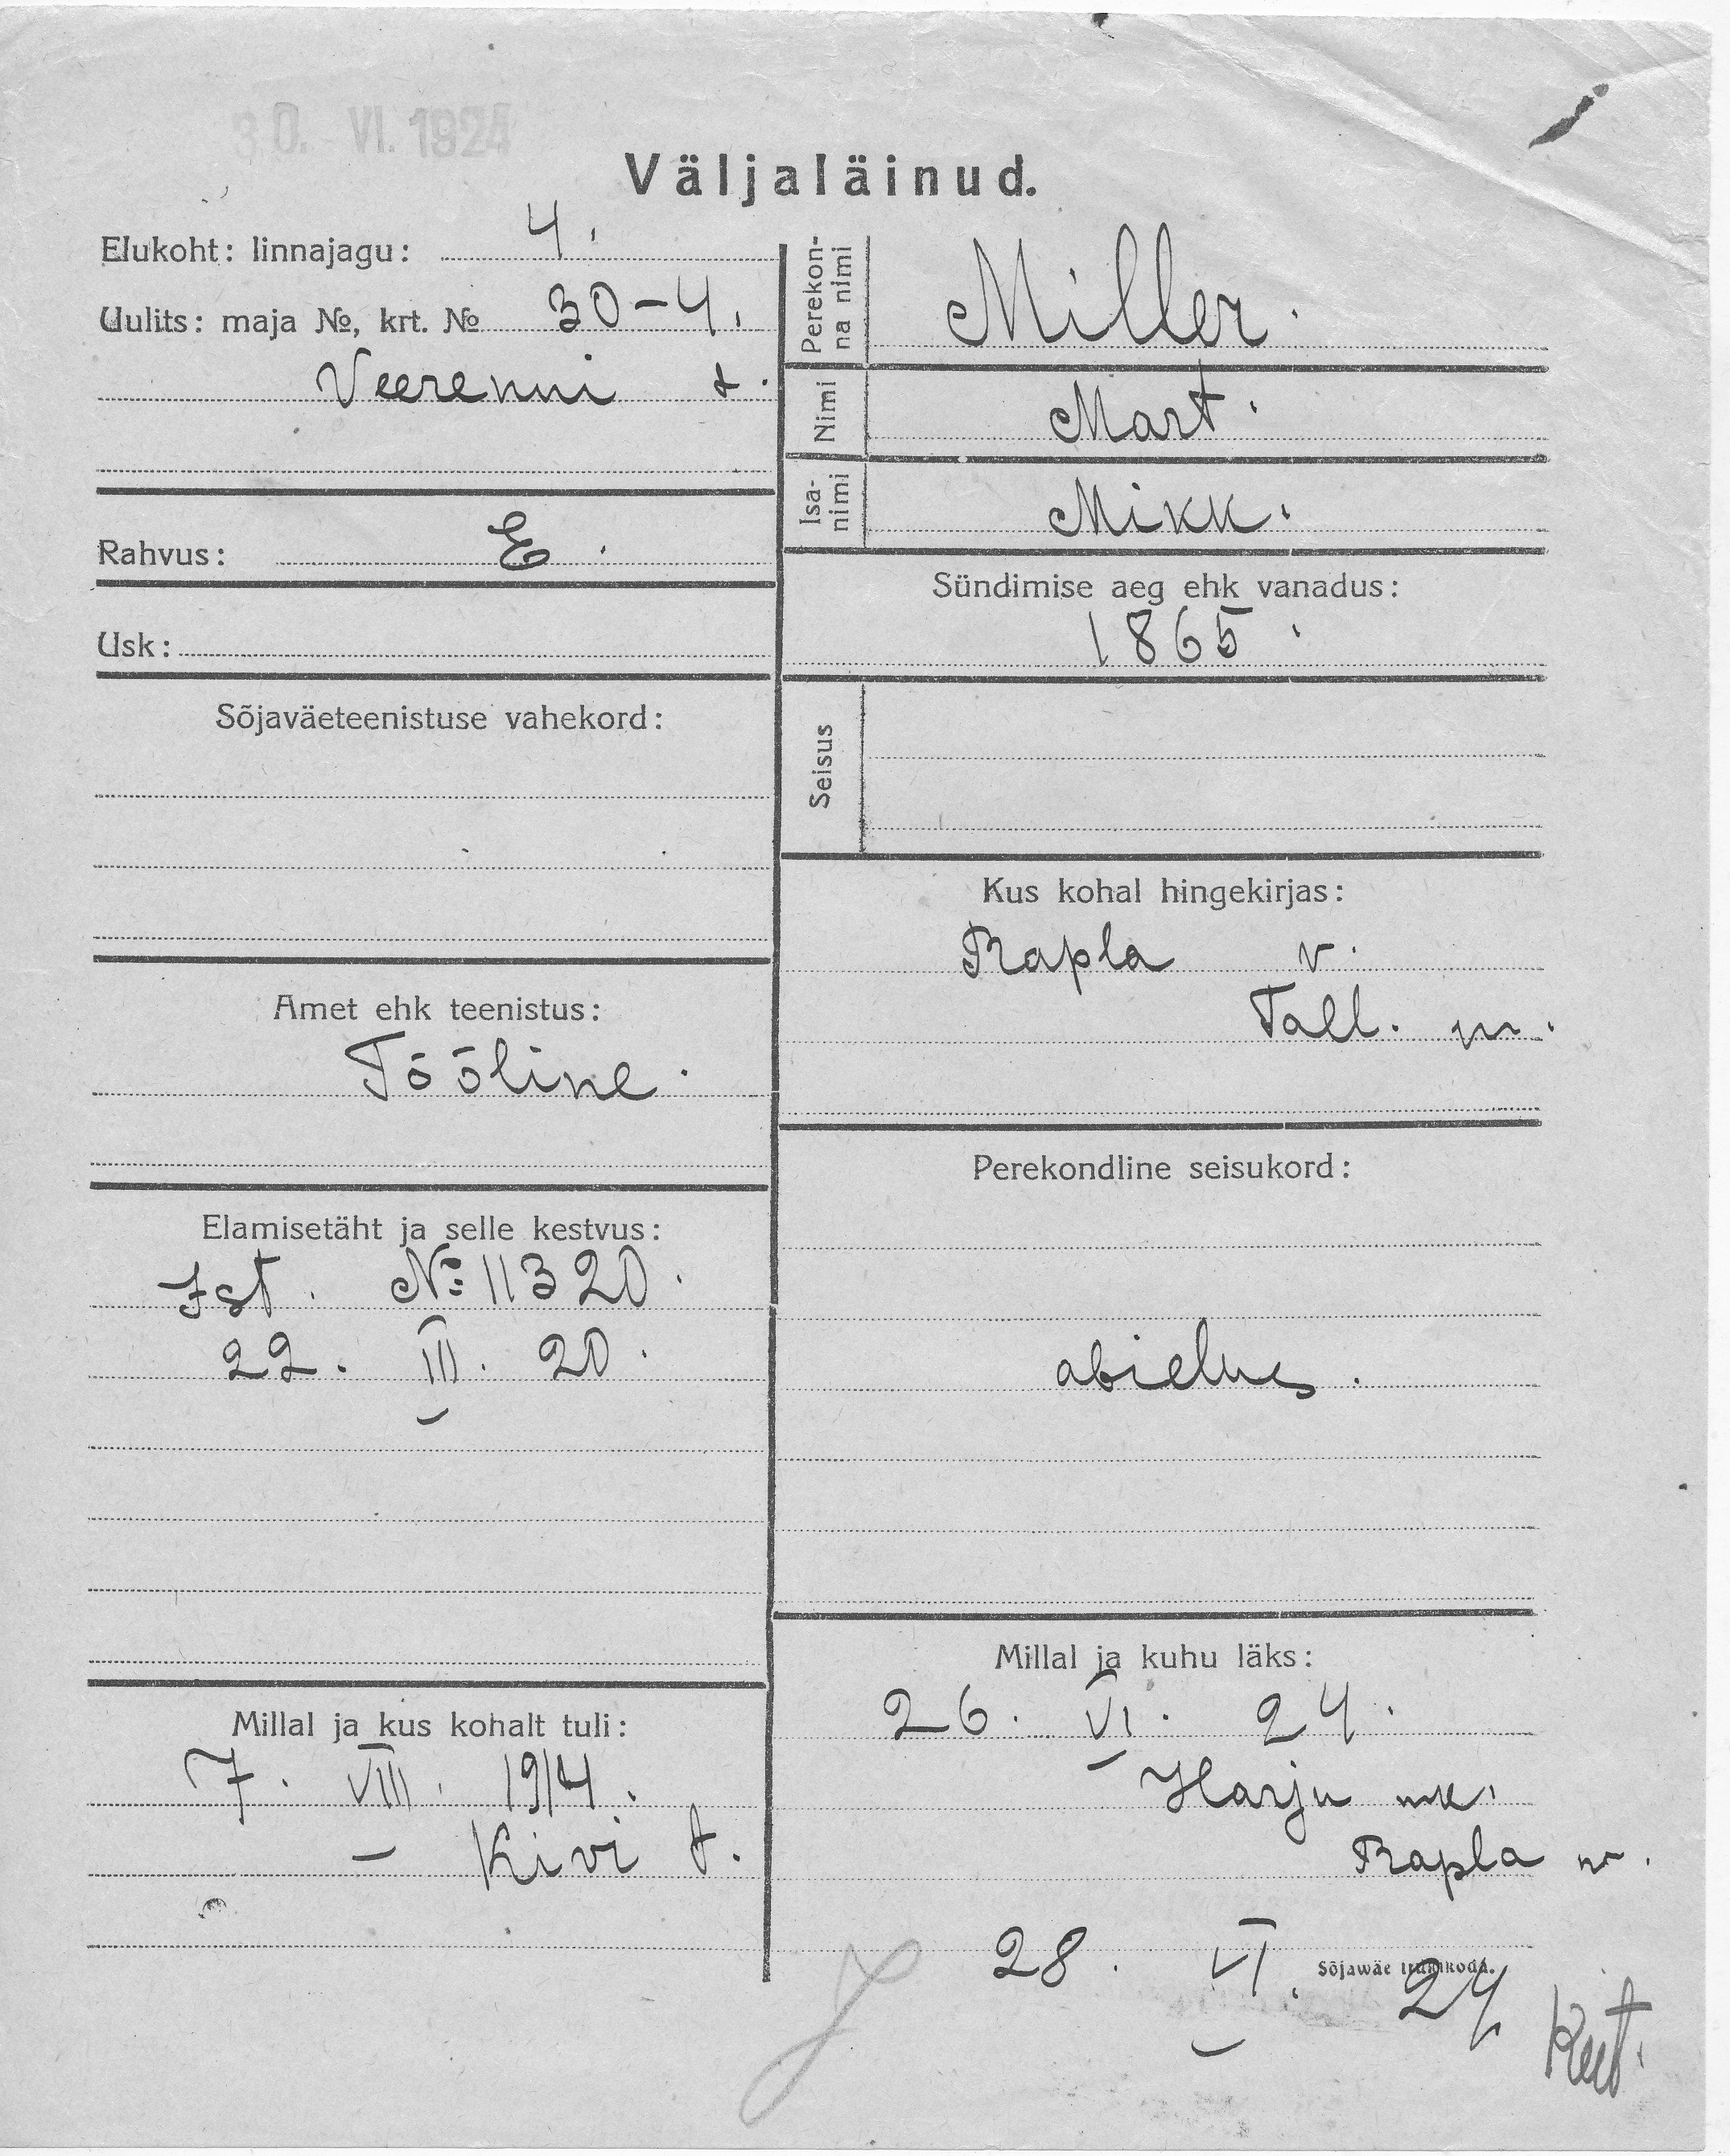 30. VI. 1924
Väljaläinud.
Elukoht: linnajagu: 4.
Uulits: maja №, krt. № 30-4.
Veerenni t.
Rahvus: E.
Usk:
Sõjaväeteenistuse vahekord:
Amet ehk teenistus:
Tööline.
Elamisetäht ja selle kestvus:
Ist. № 11320.
22. III. 20.
Millal ja kus kohalt tuli:
7. VIII. 1914.
– Kivi t.
Perekon-
na nimi
Miller.
Nimi
Mart.
Isa-
nimi
Mikk.
Sündimise aeg ehk vanadus:
1865.
Seisus
Kus kohal hingekirjas:
Rapla v.
Tall. m.
Perekondline seisukord:
abielus.
Millal ja kuhu läks:
26. VI. 24.
Harju mk.
Rapla v.
28. VI. 24
Sõjawäe trükikoda.